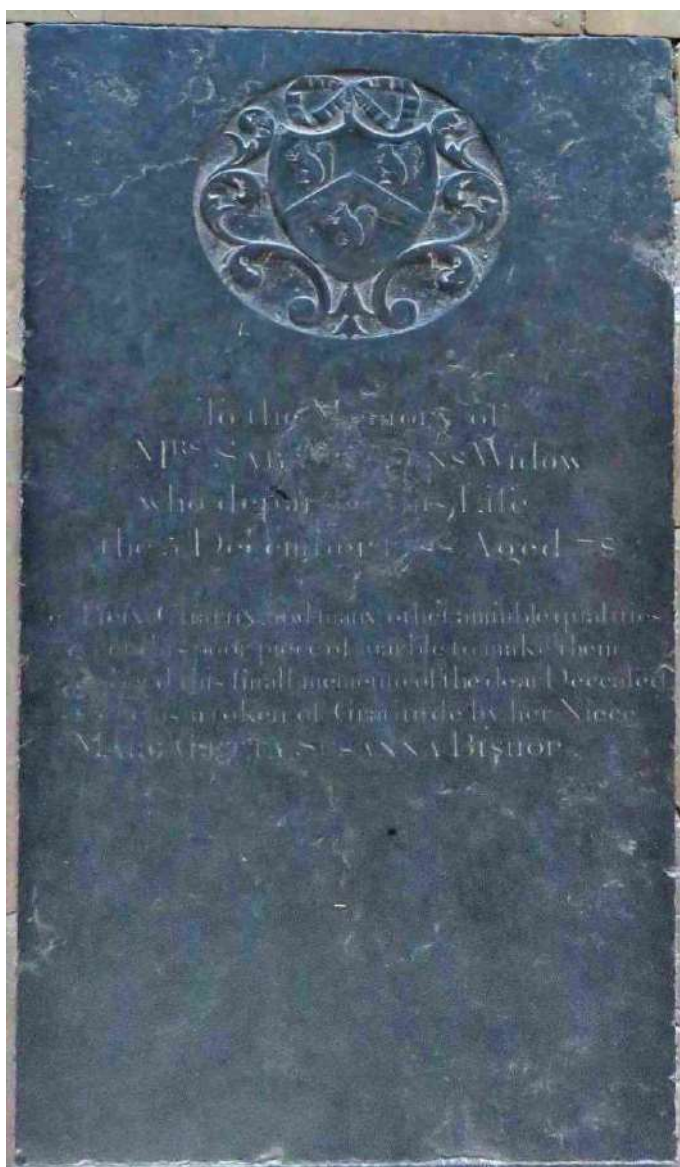 To the Memory of
Mrs Widow
who Life
the 5 December Aged 78
Piety, Charity, and many other amiable qualities
poor piece of marble to make them
this small memento of the dear Deceased
as a token of Gratitude by her Niece
MARGARETTA SUSANNA BISHOP.